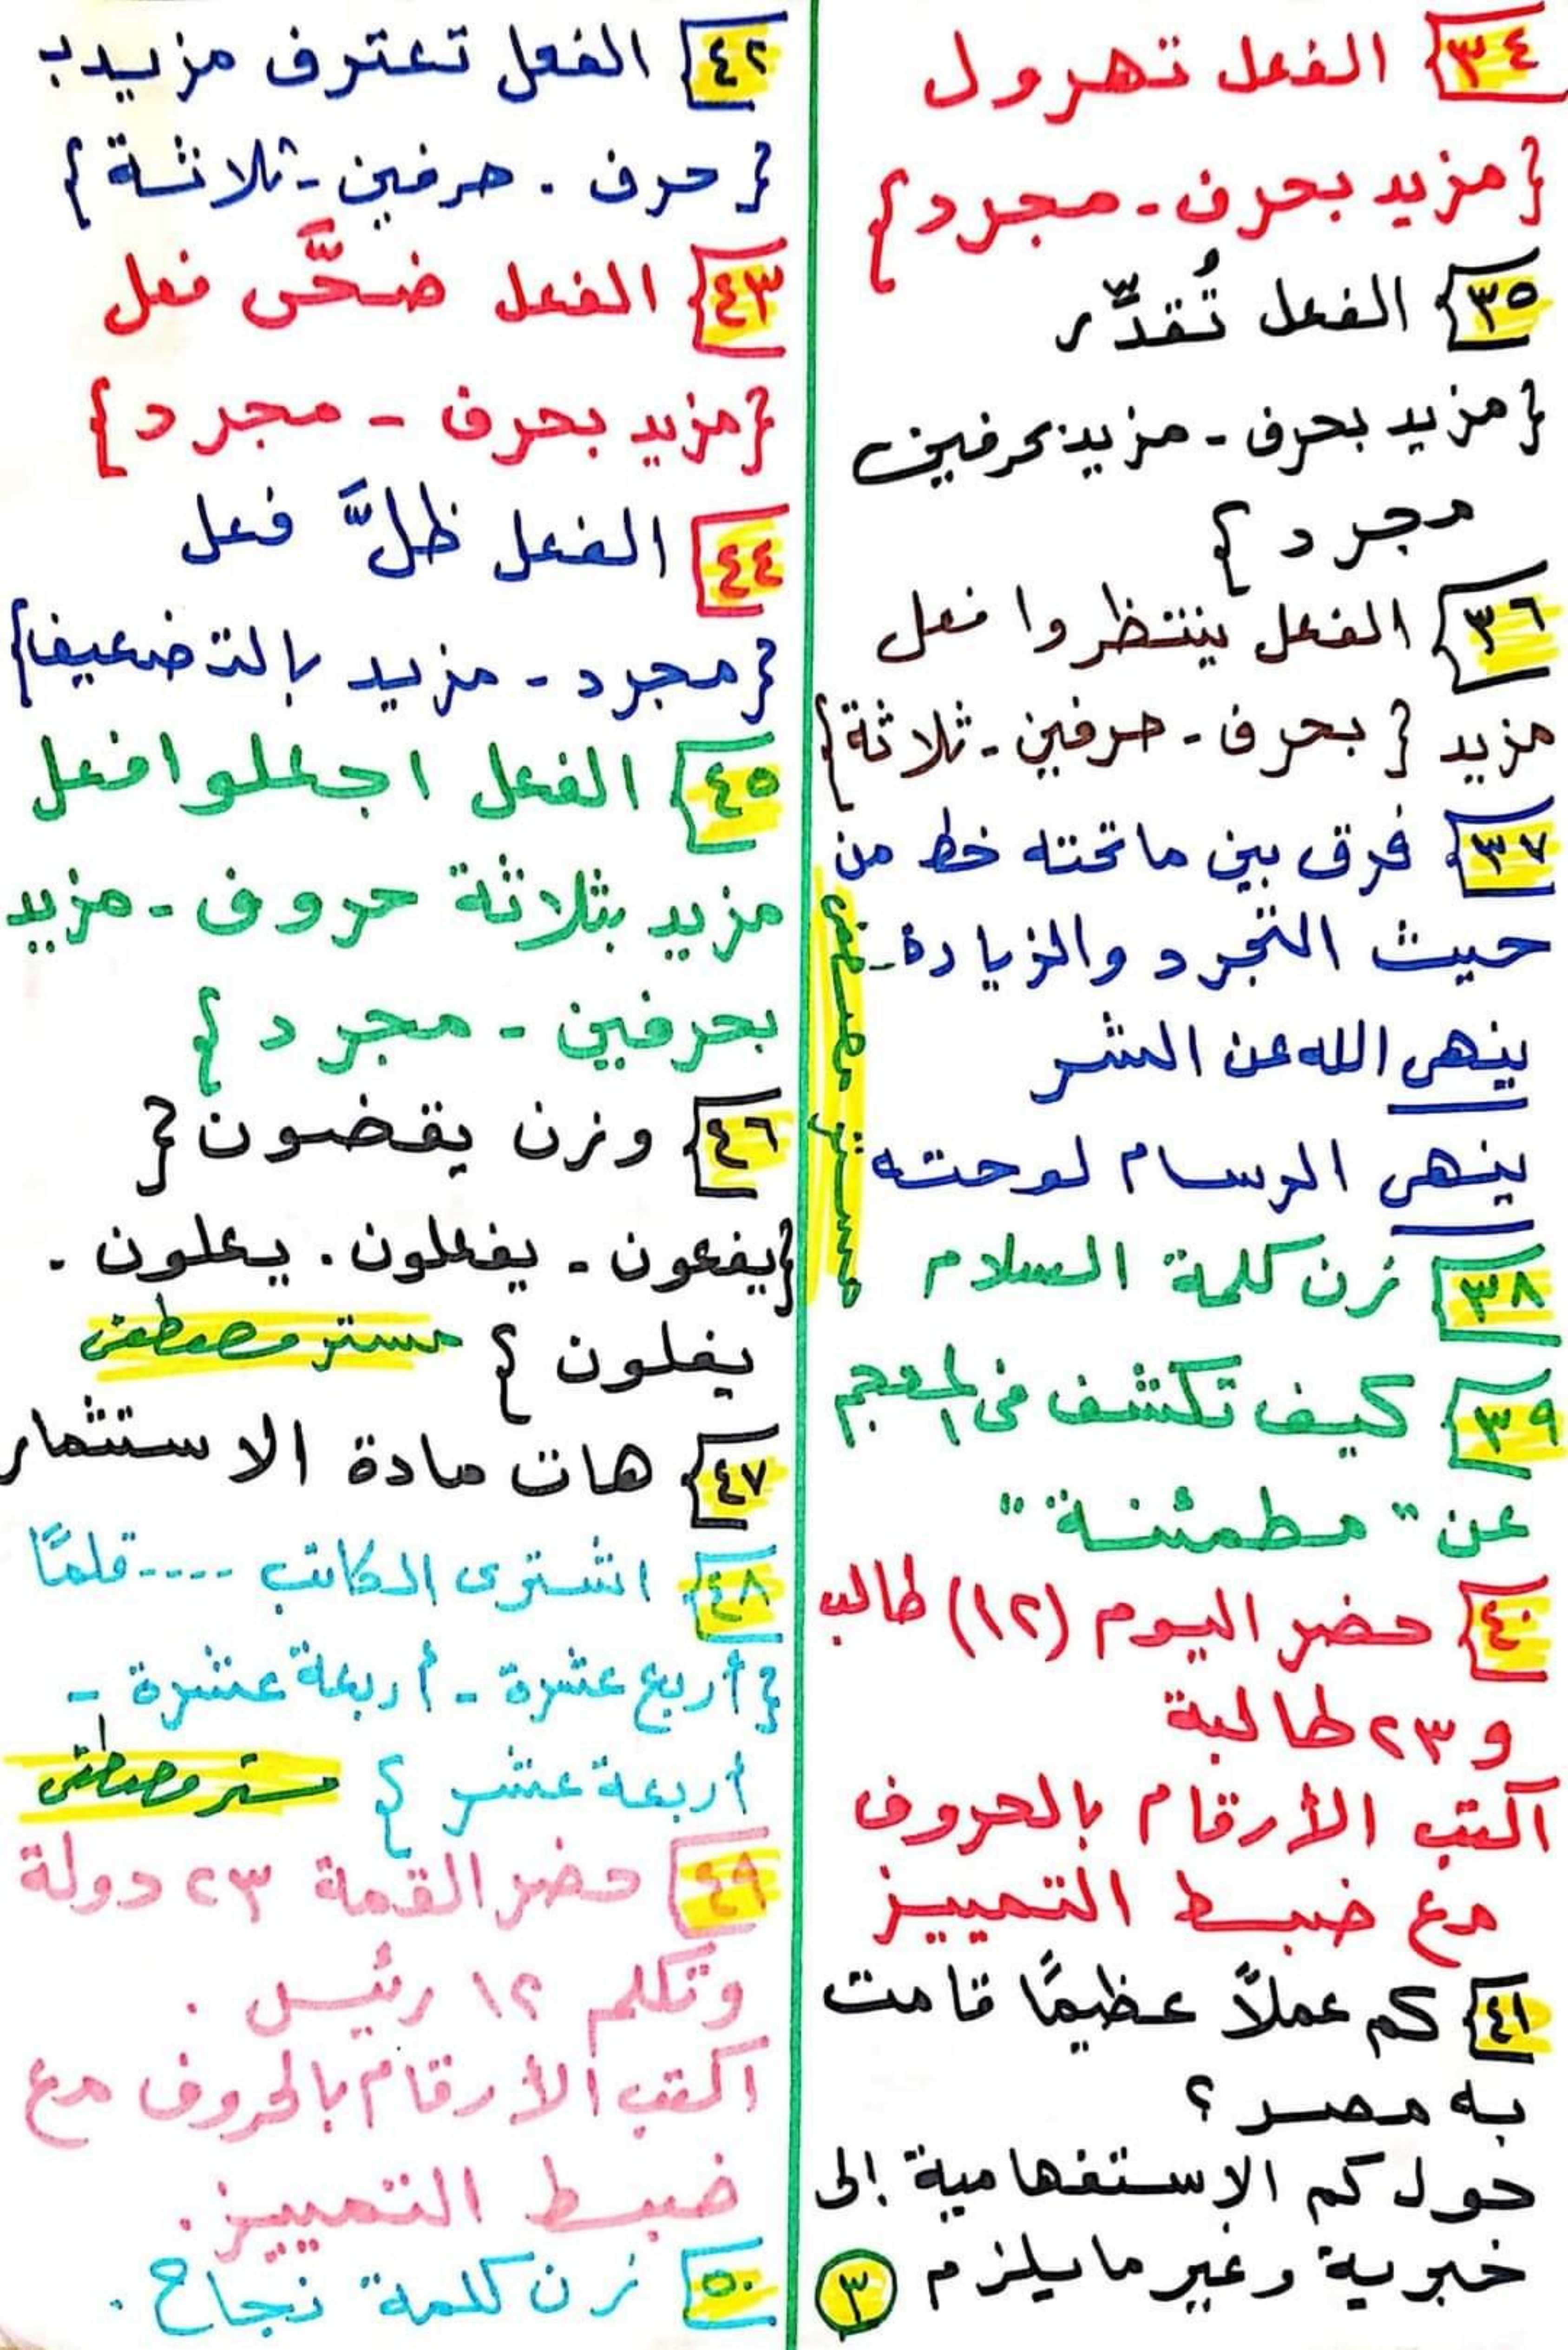 ٣٤ الفعل تهرول
{مزيد بحرف - مجرد}
٣٥ الفعل تُقدِّر
{مزيد بحرف - مزيد بحرفين
مجرد}
٣٦ الفعل ينتظروا فعل
مزيد {بحرف - حرفين - ثلاثة}
٣٧ فرق بين ما تحته خط من
حيث التجرد والزيادة -
ينهى الله عن الشر
ينهى الرسام لوحته
٣٨ زن كلمة السلام
٣٩ كيف تكشف في المعجم
عن "مطمئنة"
٤٠ حضر اليوم (١٢) طالب
و ٢٣ طالبة
اكتب الأرقام بالحروف
مع ضبط التمييز
٤١ كم عملاً عظيمًا قامت
به مصر ؟
حول كم الاستفهامية إلى
خبرية وغير ما يلزم
٣
مستر مصطفى
٤٢ الفعل تعترف مزيد بـ
{حرف - حرفين - ثلاثة}
٤٣ الفعل ضحَّى فعل
{مزيد بحرف - مجرد}
٤٤ الفعل ظلَّ فعل
{مجرد - مزيد بالتضعيف}
٤٥ الفعل اجعلوا فعل
مزيد بثلاثة حروف - مزيد
بحرفين - مجرد}
٤٦ وزن يقضون {
{يفعون - يفعلون - يعلون -
يفلون} مستر مصطفى
٤٧ هات مادة الاستثمار
٤٨ اشترى الكاتب ---- قلمًا
{أربع عشرة - أربعة عشرة -
أربعة عشر} مستر مصطفى
٤٩ حضر القمة ٢٣ دولة
وتكلم ١٢ رئيس .
اكتب الأرقام بالحروف مع
ضبط التمييز.
٥٠ زن كلمة نجاح .